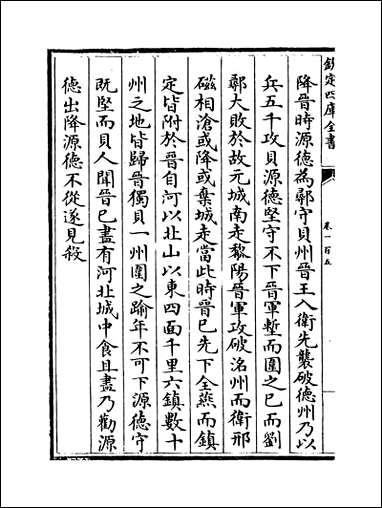 欽定四庫全書
卷一百五
降晉時源德為鄩守貝州晉王入衛先襲破德州乃以
兵五千攻貝源德堅守不下晉軍塹而圍之已而劉
鄩大敗於故元城南走黎陽晉軍攻破洺州而衛邢
磁相滄或降或棄城走當此時晉已先下全燕而鎮
定皆附於晉自河以北山以東四面千里六鎮數十
州之地皆歸晉獨貝一州圍之踰年不可下源德守
既堅而貝人聞晉已盡有河北城中食且盡乃勸源
德出降源德不從遂見殺